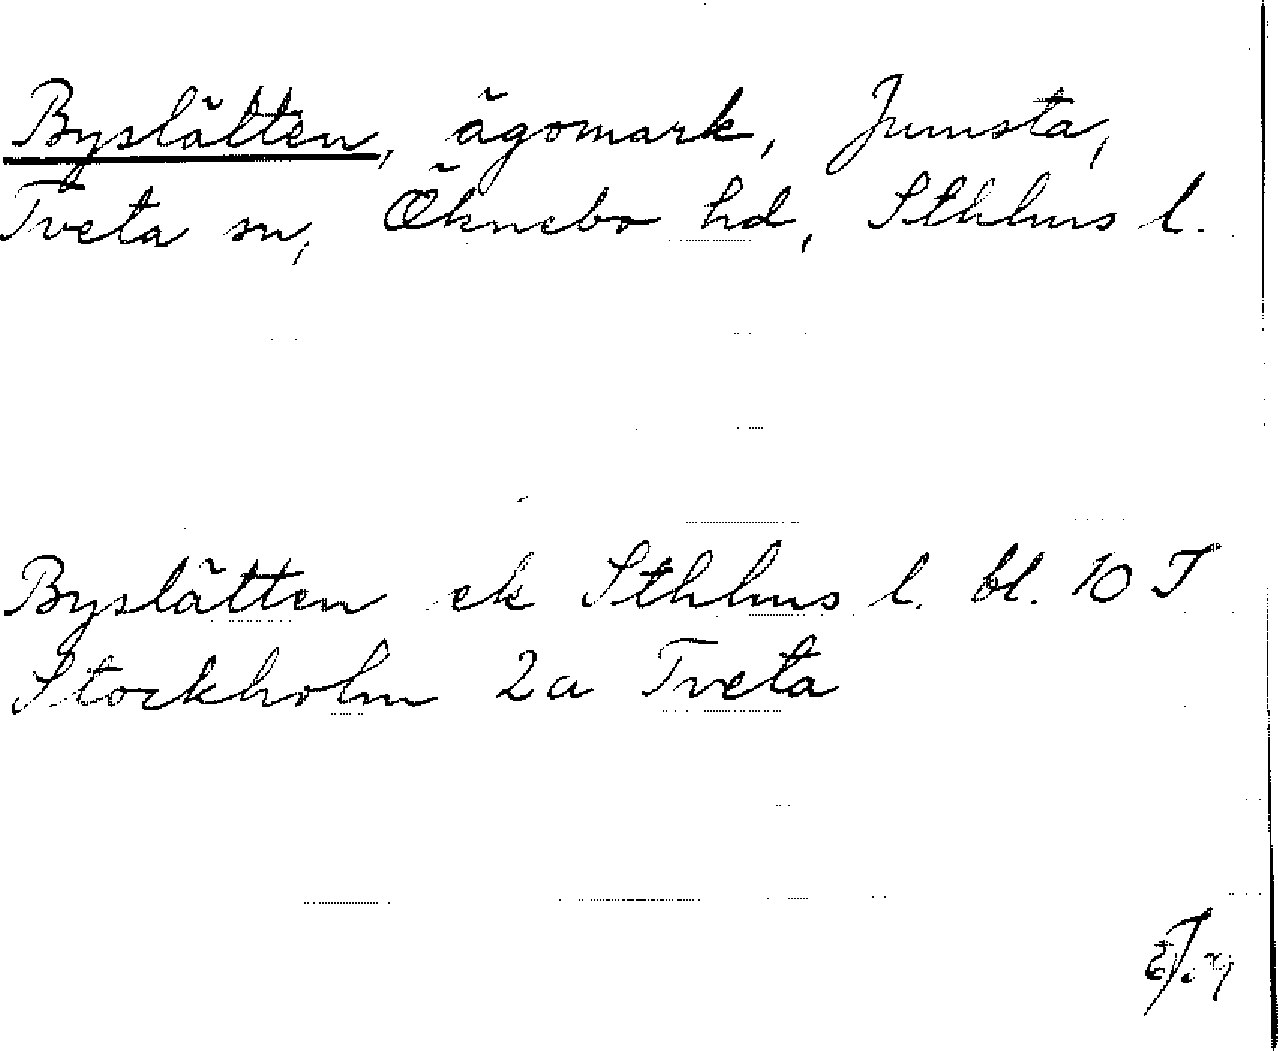 Byslätten, ägomark, Jumsta,
Tveta sn, Öknebo hd, Sthlms l.
Byslätten ek Sthlms l. bl. 10 I
Stockholm 2a Tveta